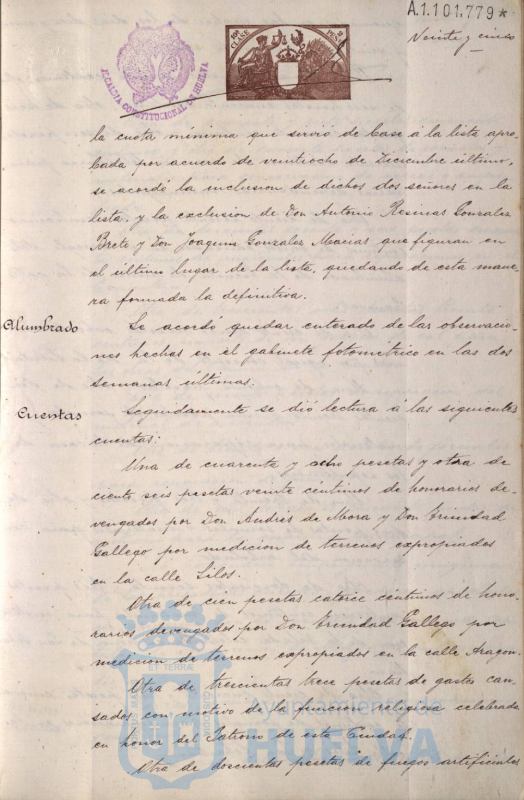 A.1.101.779*
Veinte y cinco
10ª CLASE
2 PESETAS
ALCALDIA CONSTITUCIONAL DE HUELVA
la cuota mínima que sirvió de base á la lista apro-
bada por acuerdo de veintiocho de Diciembre último,
se acordó la inclusion de dichos dos señores en la
lista, y la exclusion de Don Antonio Resinas Gonzalez
Brete y Don Joaquin Gonzalez Macias que figuran en
el último lugar de la lista, quedando de esta mane-
ra formada la definitiva.
Alumbrado
Se acordó quedar enterado de las observacio-
nes hechas en el gabinete fotométrico en las dos
semanas últimas.
Cuentas
Seguidamente se dió lectura á las siguientes
cuentas:
Una de cuarenta y ocho pesetas y otra de
ciento seis pesetas veinte céntimos de honorarios de-
vengados por Don Andrés de Mora y Don Trinidad
Gallego por medicion de terrenos expropiados
en la calle Silos.
Otra de cien pesetas catorce céntimos de hono-
rarios devengados por Don Trinidad Gallego por
medicion de terrenos expropiados en la calle Aragon.
Otra de trescientas trece pesetas de gastos cau-
sados con motivo de la funcion religiosa celebrada
en honor del Patrono de esta Ciudad.
Otra de doscientas pesetas de fuegos artificiales
Ayuntamiento
HUELVA